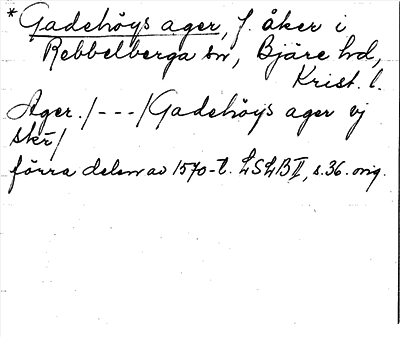 *Gadehöys ager, f. åker i
Rebbelberga sn, Bjäre hd,
Krist. l.
Ager. /---/ Gadehöys ager ej
skr/
förra delen av 1570-t. LSLB II, s. 36. orig.